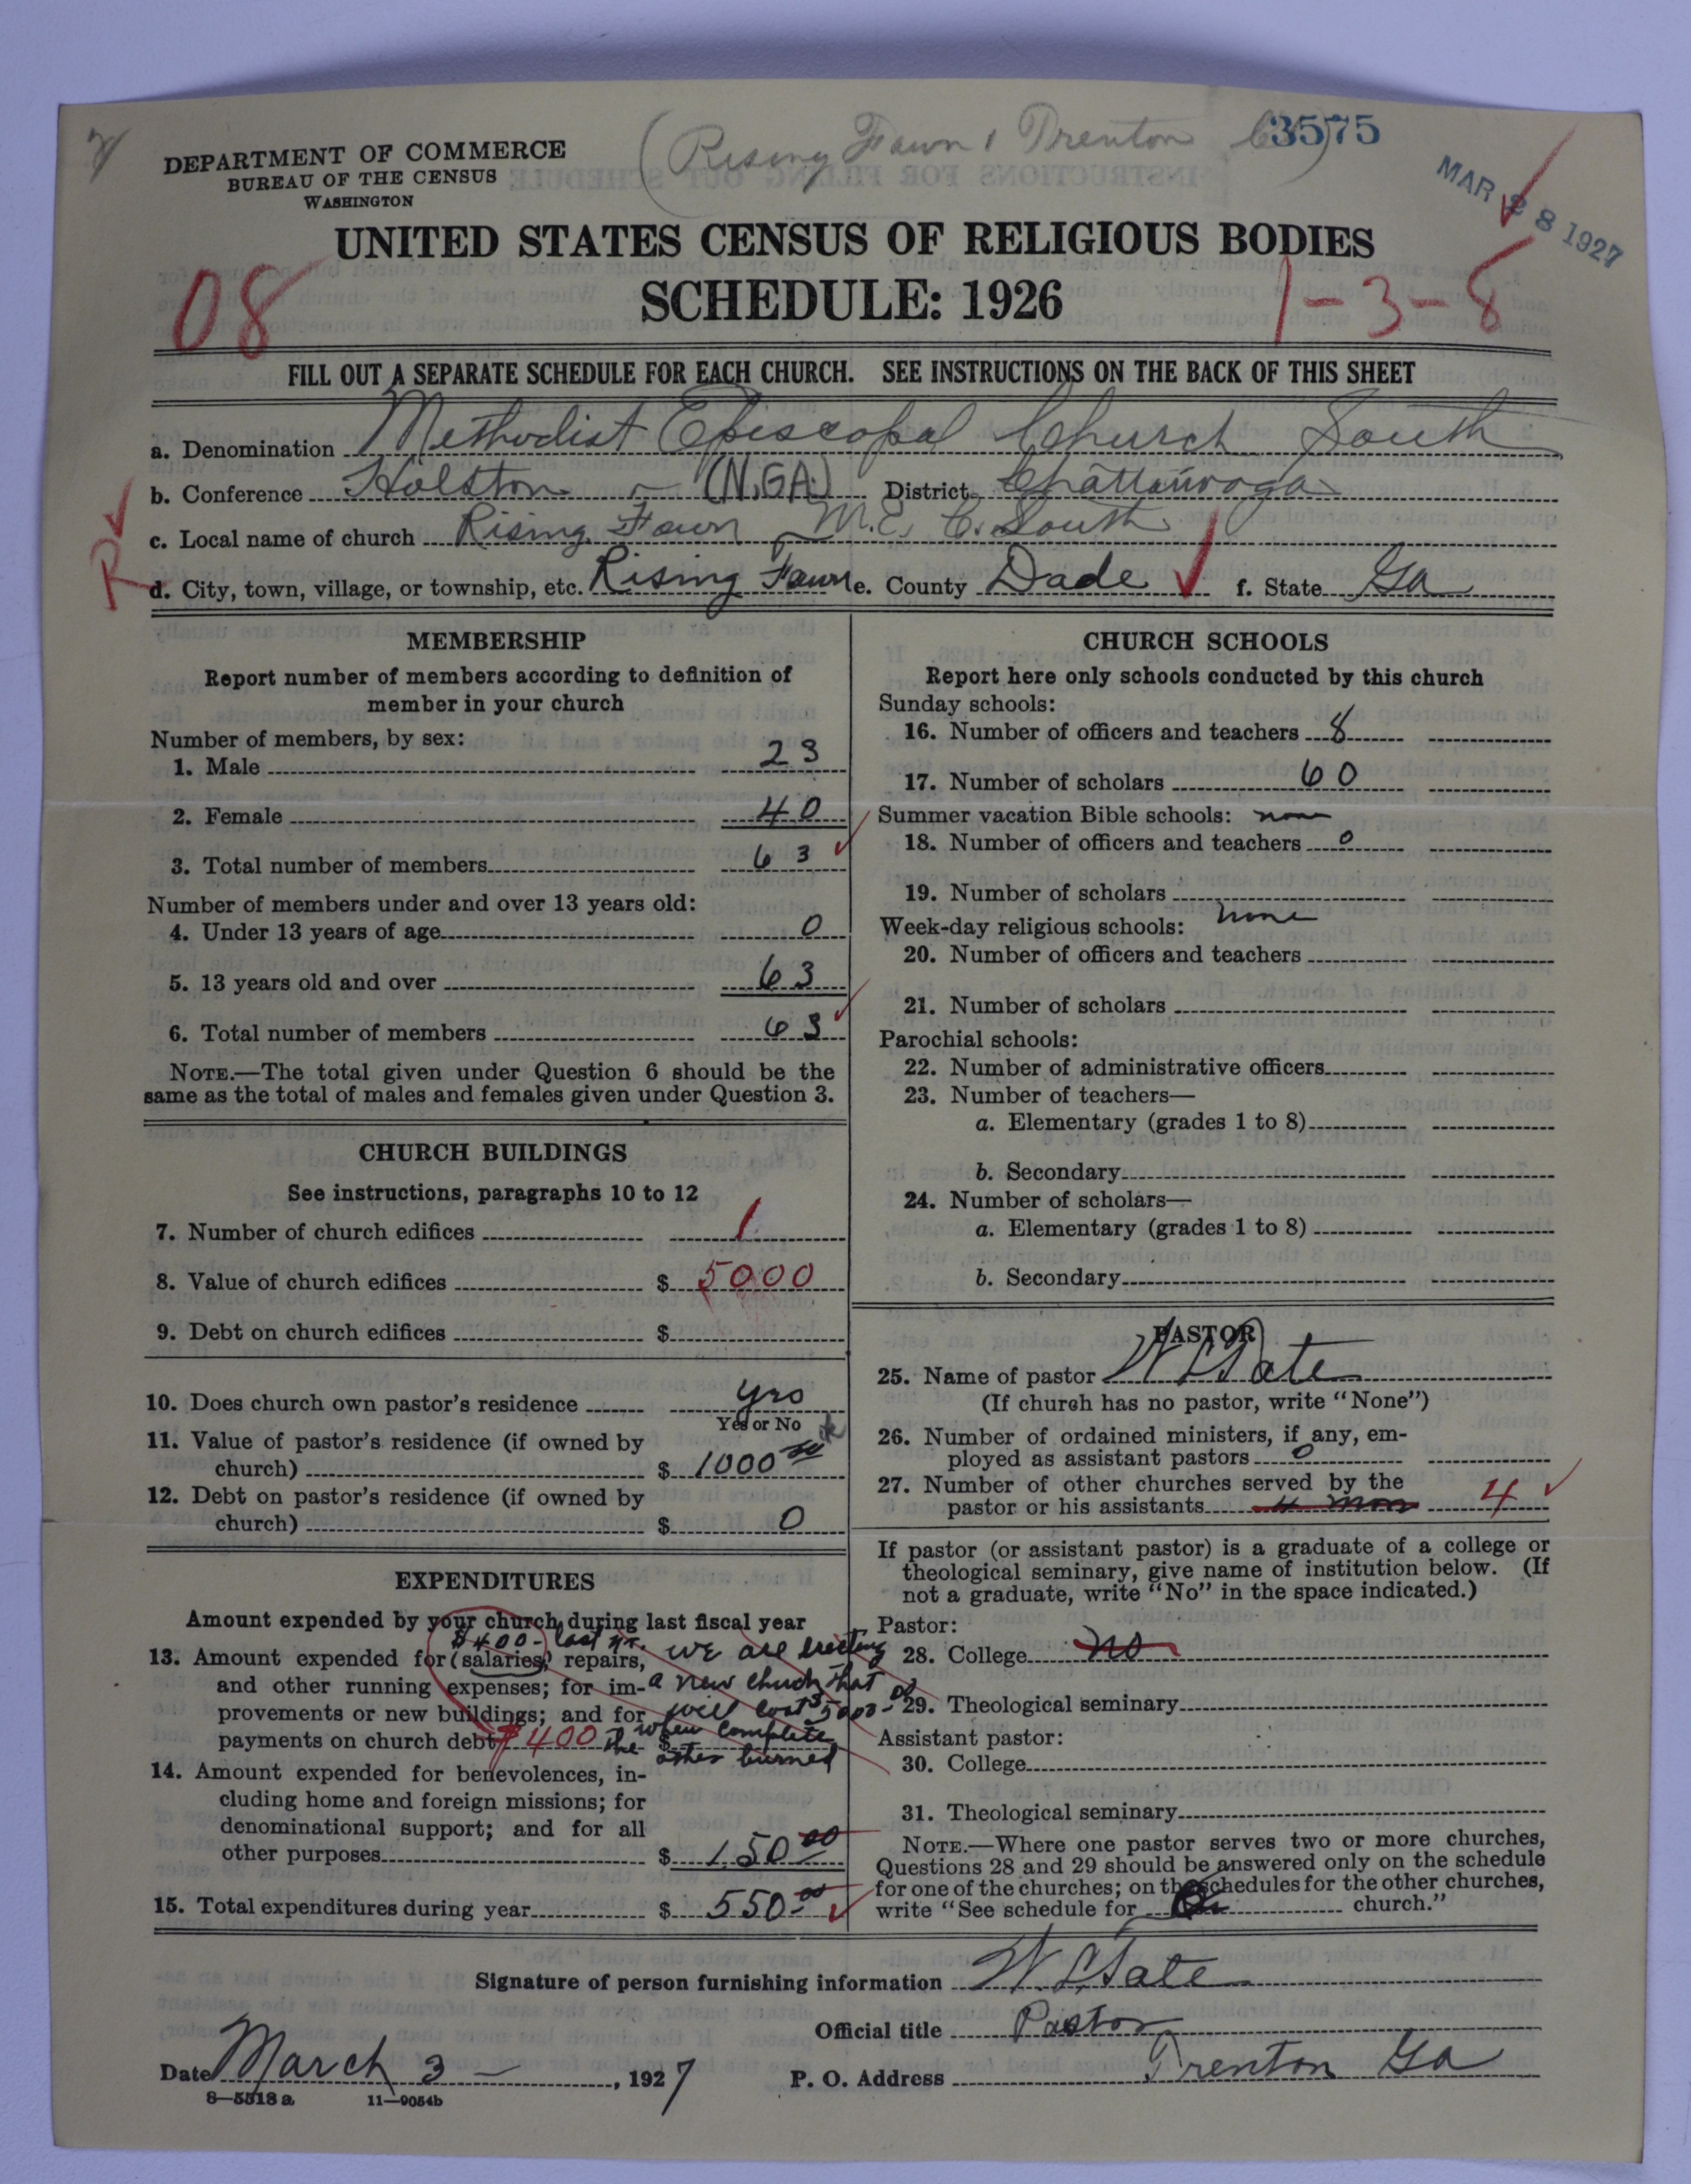 (Rising Fawn & Trenton C) 3575
DEPARTMENT OF COMMERCE
BUREAU OF THE CENSUS
WASHINGTON
MAR 28 1927
UNITED STATES CENSUS OF RELIGIOUS BODIES
SCHEDULE: 1926
08
1-3-8
FILL OUT A SEPARATE SCHEDULE FOR EACH CHURCH. SEE INSTRUCTIONS ON THE BACK OF THIS SHEET
a. Denomination Methodist Episcopal Church South
b. Conference Holston (N.GA.) District Chattanooga
c. Local name of church Rising Fawn M.E.C. South
R
d. City, town, village, or township, etc. Rising Fawn e. County Dade f. State Ga
MEMBERSHIP
Report number of members according to definition of
member in your church
Number of members, by sex:
1. Male 23
2. Female 40
3. Total number of members 63
Number of members under and over 13 years old:
4. Under 13 years of age 0
5. 13 years old and over 63
6. Total number of members 63
NOTE.—The total given under Question 6 should be the
same as the total of males and females given under Question 3.
CHURCH BUILDINGS
See instructions, paragraphs 10 to 12
7. Number of church edifices 1
8. Value of church edifices $ 5000
9. Debt on church edifices $
10. Does church own pastor's residence yes
Yes or No
11. Value of pastor's residence (if owned by
church) $ 1000 00
12. Debt on pastor's residence (if owned by
church) $ 0
EXPENDITURES
Amount expended by your church during last fiscal year
$400- last yr. we are erecting
13. Amount expended for (salaries,) repairs,
and other running expenses; for im- a new church that
provements or new buildings; and for will cost $5000-00
payments on church debt $400 $ when complete
the other burned
14. Amount expended for benevolences, in-
cluding home and foreign missions; for
denominational support; and for all
other purposes $ 150 00
15. Total expenditures during year $ 550-00
CHURCH SCHOOLS
Report here only schools conducted by this church
Sunday schools:
16. Number of officers and teachers 8
17. Number of scholars 60
Summer vacation Bible schools: none
18. Number of officers and teachers 0
19. Number of scholars
Week-day religious schools: none
20. Number of officers and teachers
21. Number of scholars
Parochial schools:
22. Number of administrative officers
23. Number of teachers—
a. Elementary (grades 1 to 8)
b. Secondary
24. Number of scholars—
a. Elementary (grades 1 to 8)
b. Secondary
PASTOR
25. Name of pastor W L Tate
(If church has no pastor, write "None")
26. Number of ordained ministers, if any, em-
ployed as assistant pastors 0
27. Number of other churches served by the
pastor or his assistants 4 mon 4
If pastor (or assistant pastor) is a graduate of a college or
theological seminary, give name of institution below. (If
not a graduate, write "No" in the space indicated.)
Pastor:
28. College no
29. Theological seminary
Assistant pastor:
30. College
31. Theological seminary
NOTE.—Where one pastor serves two or more churches,
Questions 28 and 29 should be answered only on the schedule
for one of the churches; on the schedules for the other churches,
write "See schedule for church."
Signature of person furnishing information W L Tate
Official title Pastor
Date March 3 -, 1927 P. O. Address Trenton Ga
8—5518 a 11—9054b